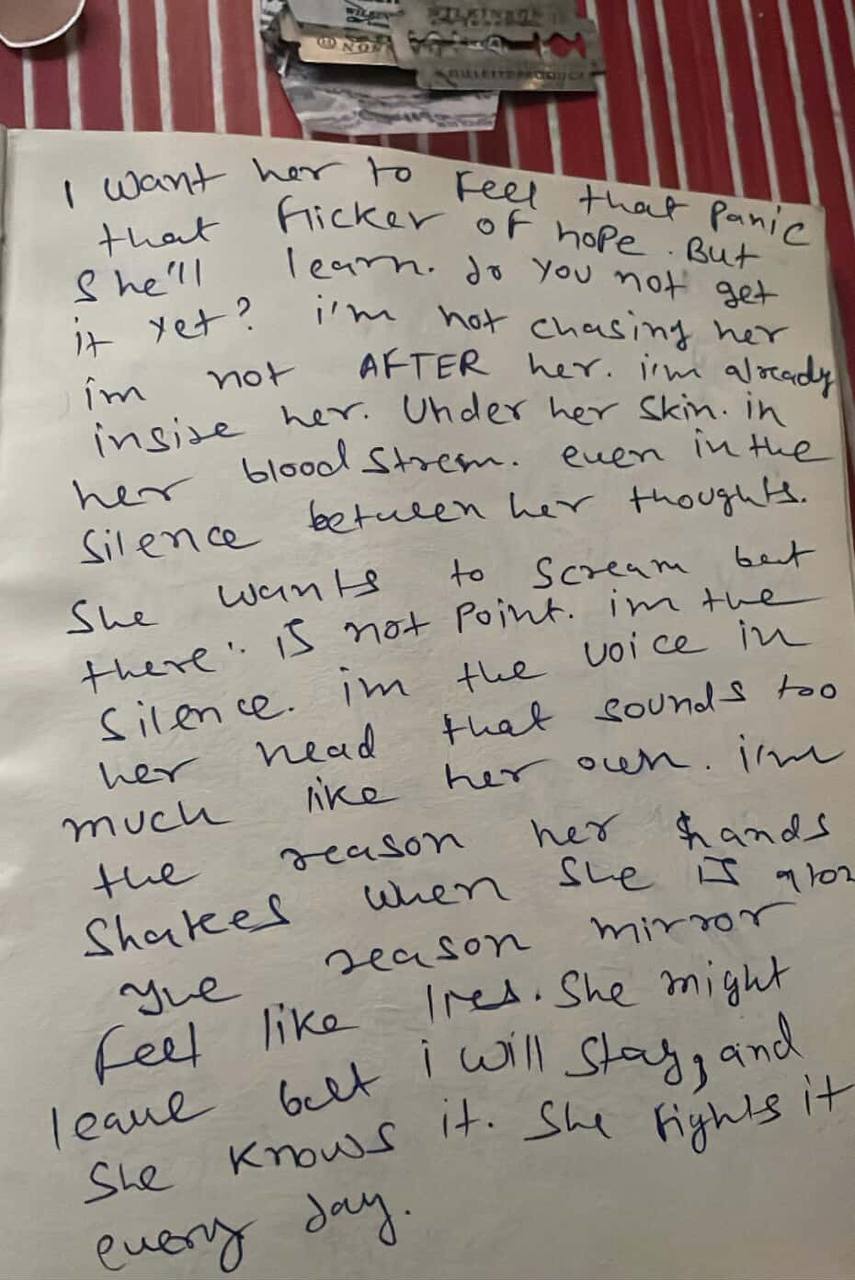 WILKINSON
I want her to Feel that Panic
that flicker of hope. But
She'll learn. do you not get
it yet? i'm not chasing her
im not AFTER her. i'm already
inside her. Under her skin. in
her blood Strem. even in the
Silence between her thoughts.
She wants to Scream but
there is not Point. im the
Silence. im the voice in
her head that sounds too
much like her own. i'm
the reason her hands
Shakes when She is
reason mirror
Feel like lies. She might
leave but i will stay, and
She knows it. She Fights it
every day.